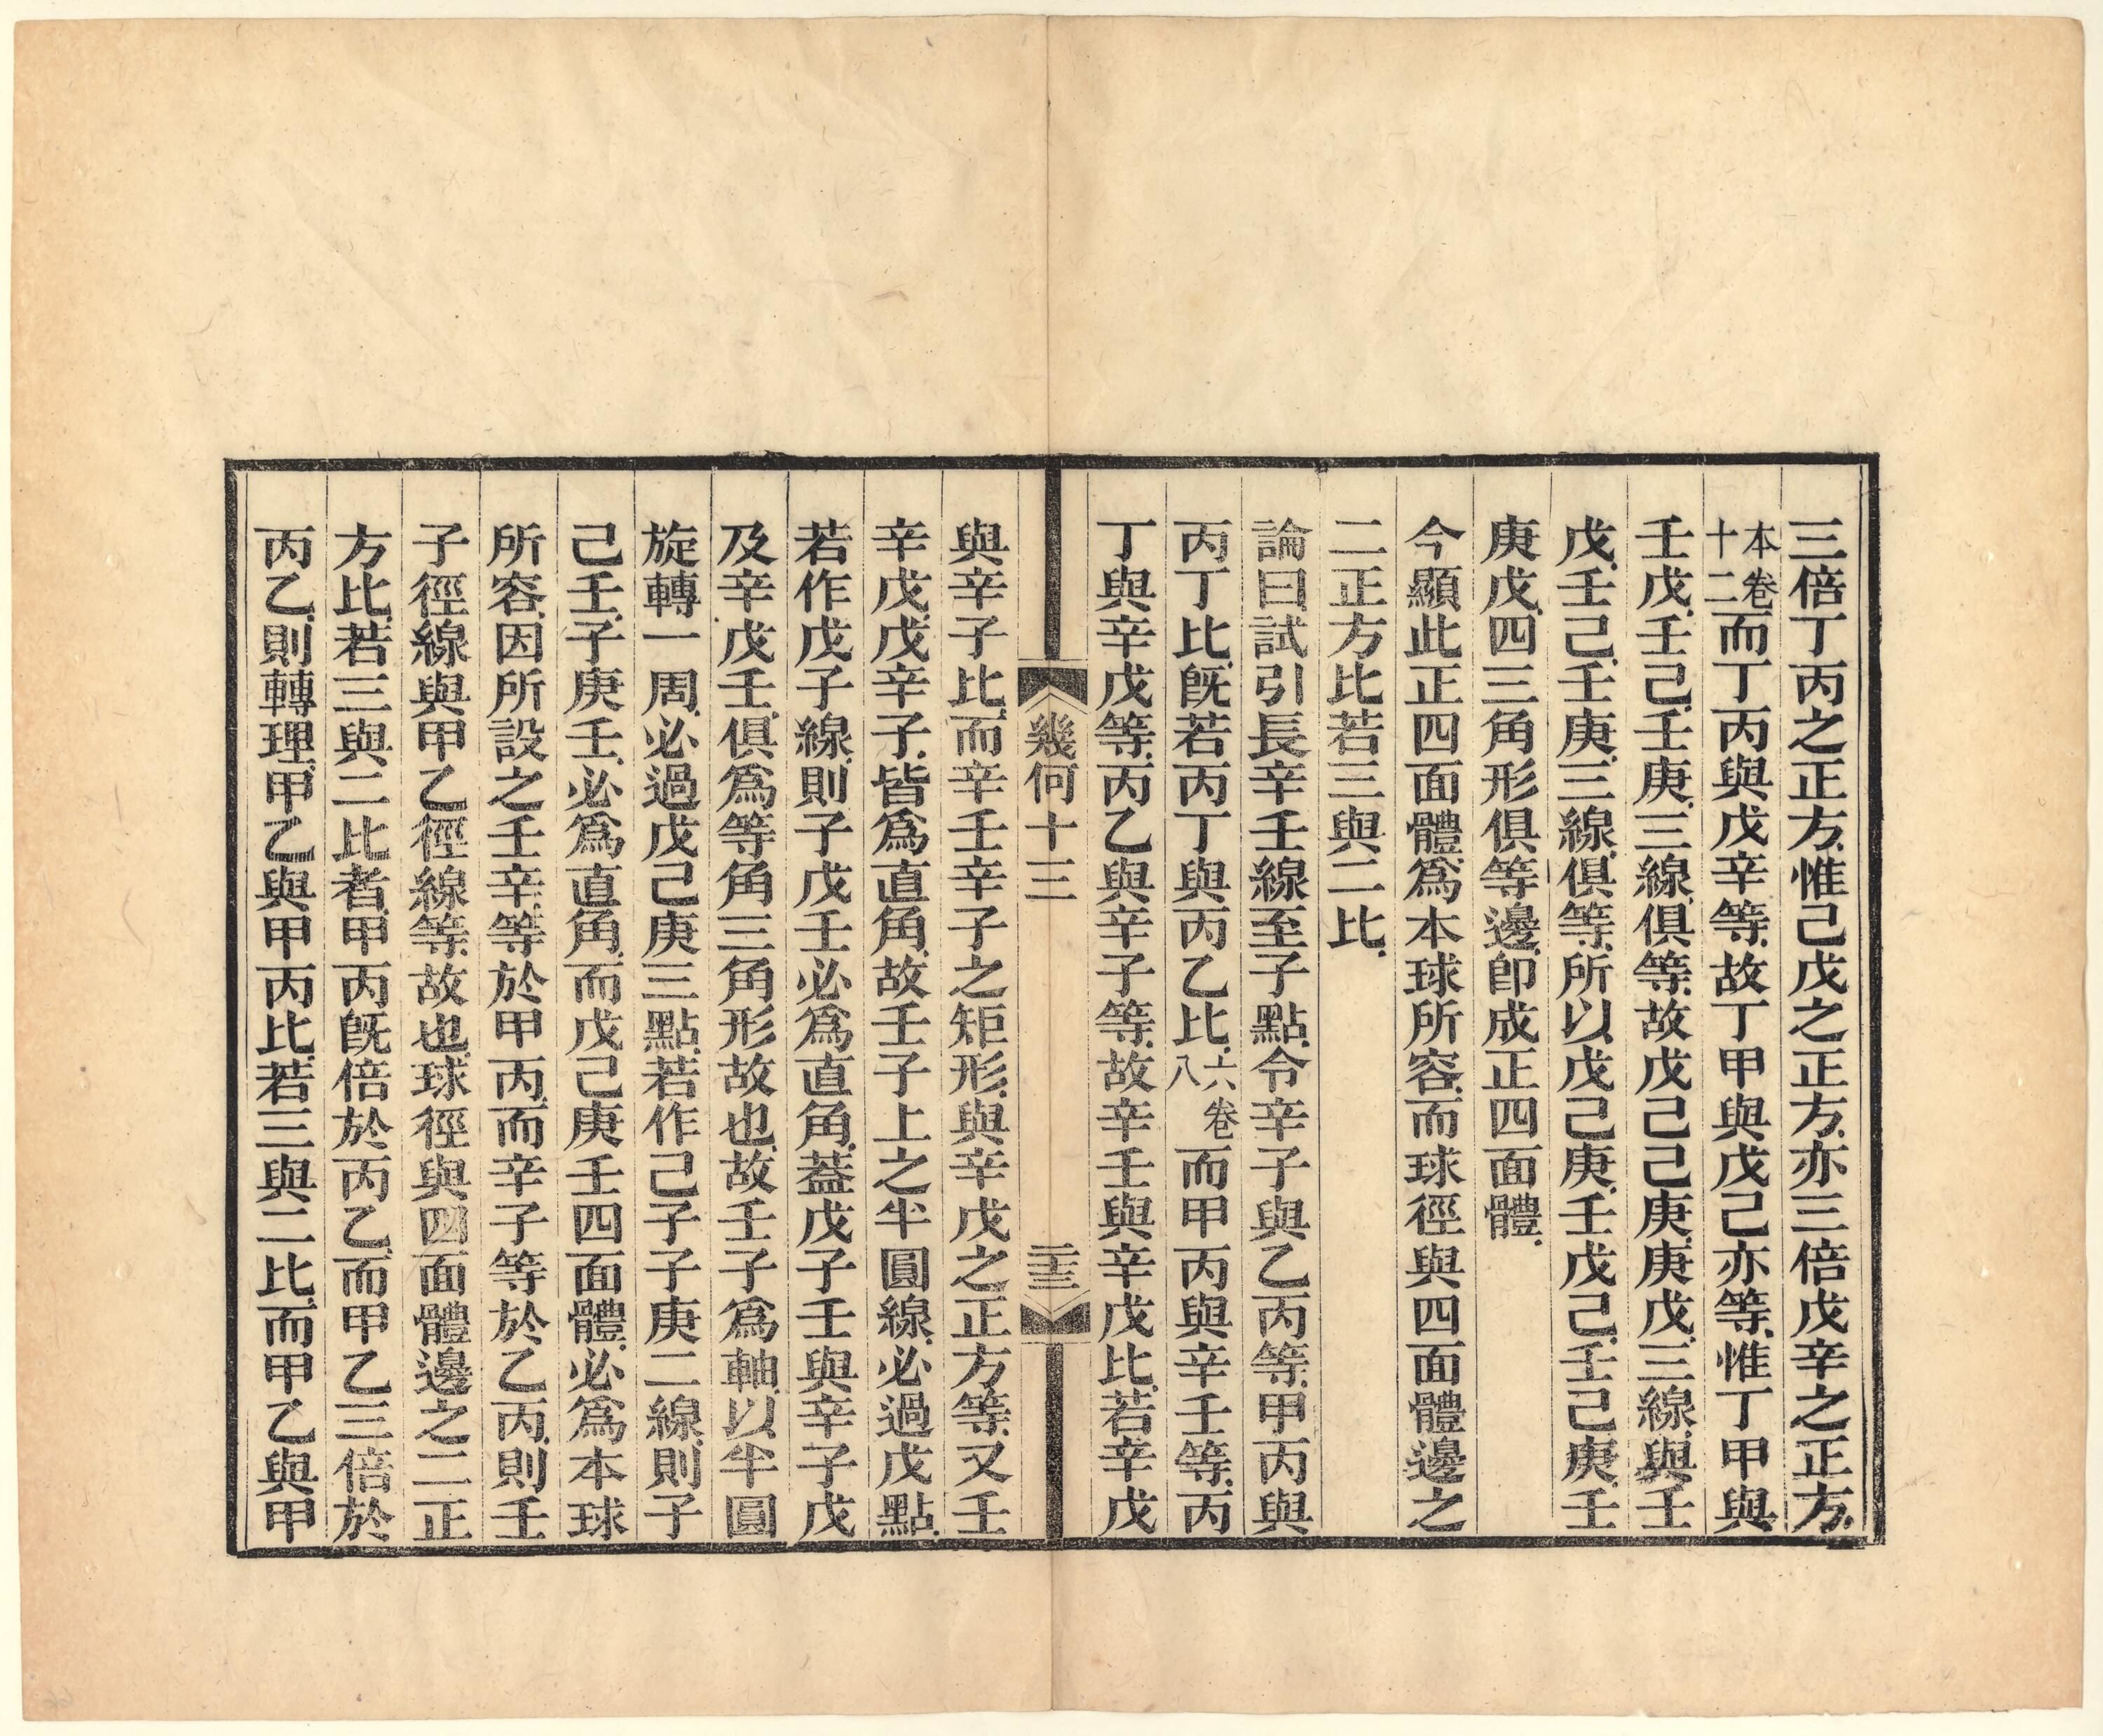 三倍丁丙之正方、惟己戊之正方、亦三倍戊辛之正方、
本卷十二而丁丙與戊辛等、故丁甲與戊己亦等、惟丁甲與
壬戊、壬己、壬庚、三線、俱等、故戊己己庚、庚戊、三線、與壬
戊、壬己、壬庚、三線、俱等、所以戊己庚、壬戊己、壬己庚、壬
庚戊、四三角形俱等邊、卽成正四面體、
今顯此正四面體、爲本球所容、而球徑與四面體邊之
二正方比若三與二比、
論曰、試引長辛壬線至子點、令辛子與乙丙等、甲丙與
丙丁比、旣若丙丁與丙乙比、六卷八而甲丙與辛壬等、丙
丁與辛戊等、丙乙與辛子等、故辛壬與辛戊比、若辛戊
幾何十三
二十三
與辛子比、而辛壬辛子之矩形、與辛戊之正方等、又壬
辛戊、戊辛子、皆爲直角、故壬子上之半圓線、必過戊點、
若作戊子線、則子戊壬必爲直角、葢戊子壬與辛子戊
及辛戊壬、俱爲等角三角形故也、故壬子爲軸、以半圓
旋轉一周、必過戊己庚三點、若作己子子庚二線、則子
己壬、子庚壬、必爲直角、而戊己庚壬四面體、必爲本球
所容、因所設之壬辛、等於甲丙、而辛子等於乙丙、則壬
子徑線與甲乙徑線等、故也、球徑與四面體邊之二正
方比、若三與二比者、甲丙旣倍於丙乙、而甲乙三倍於
丙乙、則轉理、甲乙與甲丙比、若三與二比、而甲乙與甲